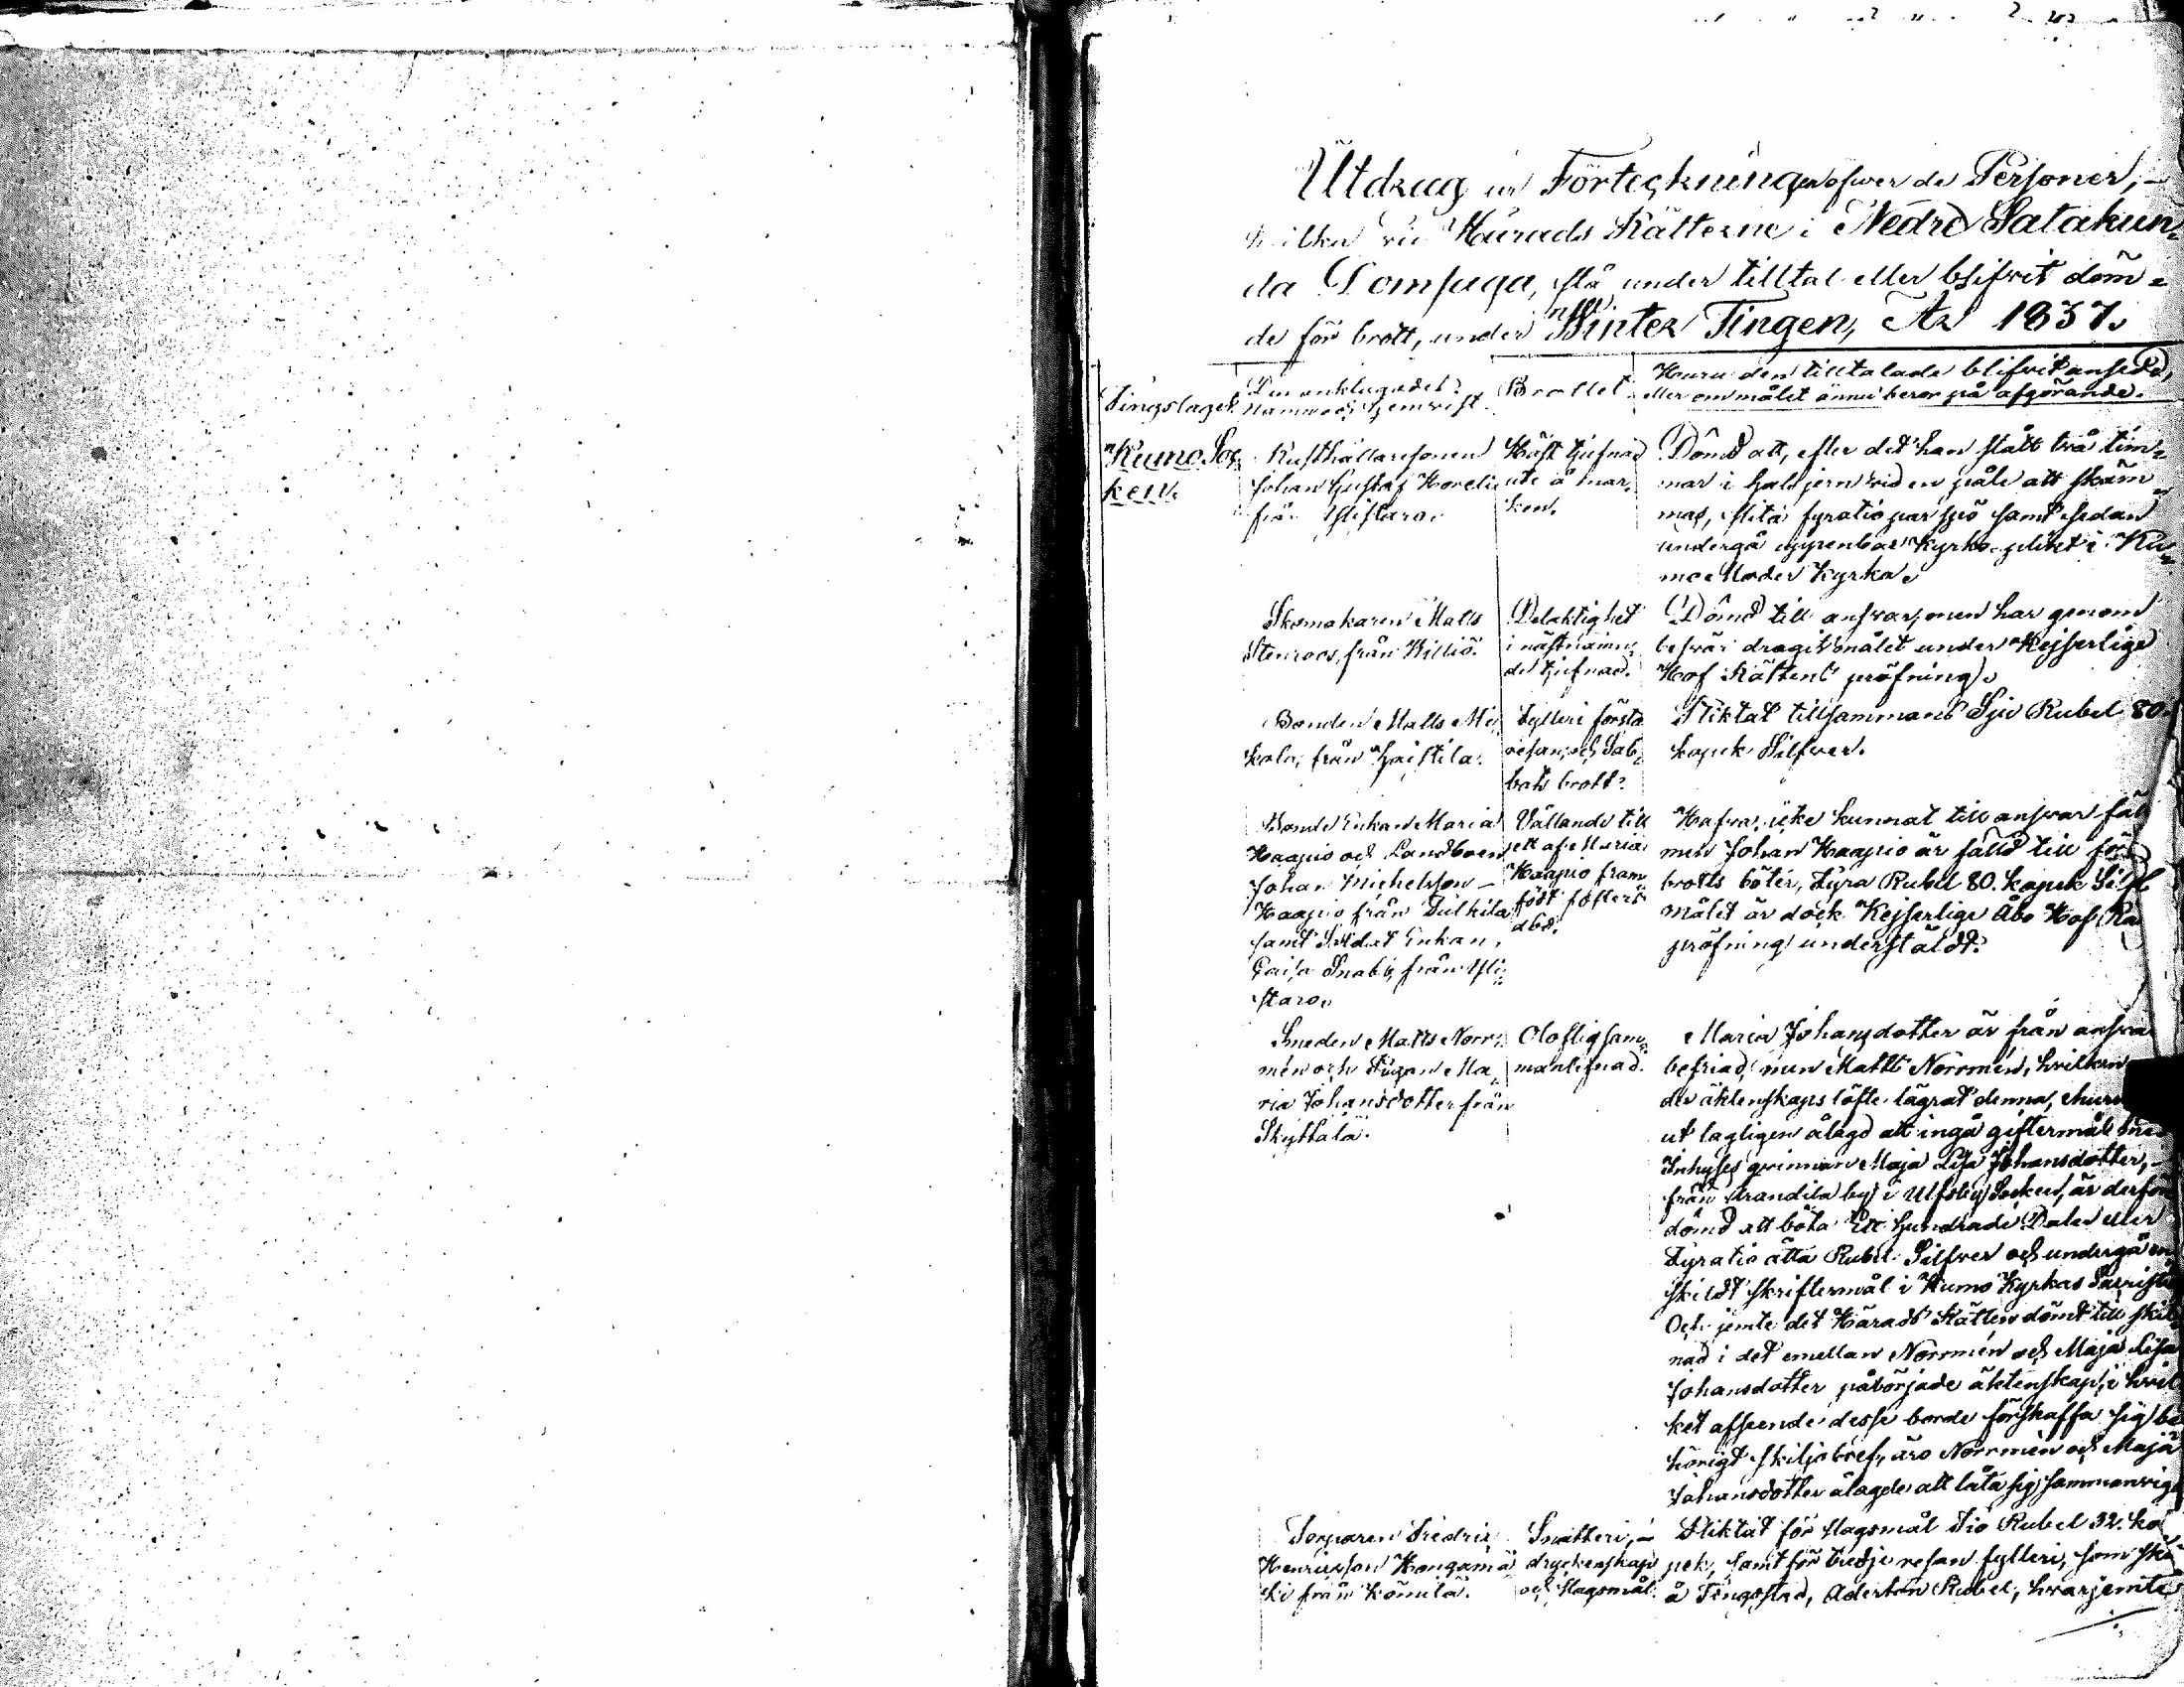 Utdrag ur Förteckningen öfwer de Personer,
hvilka vid Härads Rätterne i Nedre Satakun-
da Domsaga, stå under tilltal eller blifvit döm-
de för brott, under Winter Tingen, År 1837.
Tingslaget.
Den anklagades
Namn och Hemvist.
Brottet.
Huru den tilltalade blifvit ansedd,
eller om målet ännu beror på afgörande.
Kumo Soc-
ken.
Rusthållaresonen
Johan Gustaf
från Ylistaro.
Häst tjufnad
ute å mar-
ken.
Dömd att, efter det han stått två tim-
mar i halsjern vid en påle att skäm-
mas, slita fyratio par spö samt sedan
undergå uppenbar Kyrko-plikt i Ku-
mo Moder Kyrka.
Skomakaren Matts
Stenroos, från
Delaktighet
i nästnämn-
de tjufnad.
Dömd till ansvar, men har genom
besvär dragit målet under Kejserlige
Hof Rättens pröfning.
Bonden Matts Mi-
kola, från Haistila.
Fylleri första
resan, och Sab-
bats brott.
Pliktat tillsammans Sju Rubel 80.
kopek Silfver.
Bonde Enkan Maria
Haapio och Landboen
Johan Michelsson
Haapio från Sulkila
samt Soldat Enkan,
Caisa Snabb, från Yli-
staro.
Vållande till
ett af Maria
Haapio fram
födt fosters
död.
Hafva icke kunnat till ansvar fäl
men Johan Haapio är fälld till för
brotts böter, Fyra Rubel 80. kopek Silf
målet är dock Kejserlige Åbo Hof Rä
pröfning underställdt.
Smeden Matts Norr-
mén och Pigan Ma-
ria Johansdotter från
Skyttälä.
Oloflig sam-
manlefnad.
Maria Johansdotter är från ansva
befriad, men Matts Norrmén, hvilken
der äktenskaps löfte lägrat denna, ehuru
ut lagligen ålagd att ingå giftermål med
Inhyses qvinnan Maja Lisa Johansdotter,
från by i Ulfsby Socken, är derför
dömd att böta Ett hundrade Daler eller
Fyratio åtta Rubel Silfver och undergå en
skildt skriftermål i Kumo Kyrkas Sacristi
Och jemte det Härads Rätten dömt till skil-
nad i det emellan Norrmén och Maja Lisa
Johansdotter påbörjade äktenskap, i hvil
ket afseende desse borde förskaffa sig be
hörigt skiljobref, äro Norrmén och Maja
Johansdotter ålagde att låta sig sammanvig
Torparen Fredric
Henricsson Hongamä
ki från Kömilä.
Snatteri,
dryckenskap
och slagsmål.
Pliktat för slagsmål Tio Rubel 32. ko
pek, samt för tredje resan fylleri, som ske
å Tingsstad, Aderton Rubel, hvarjemte